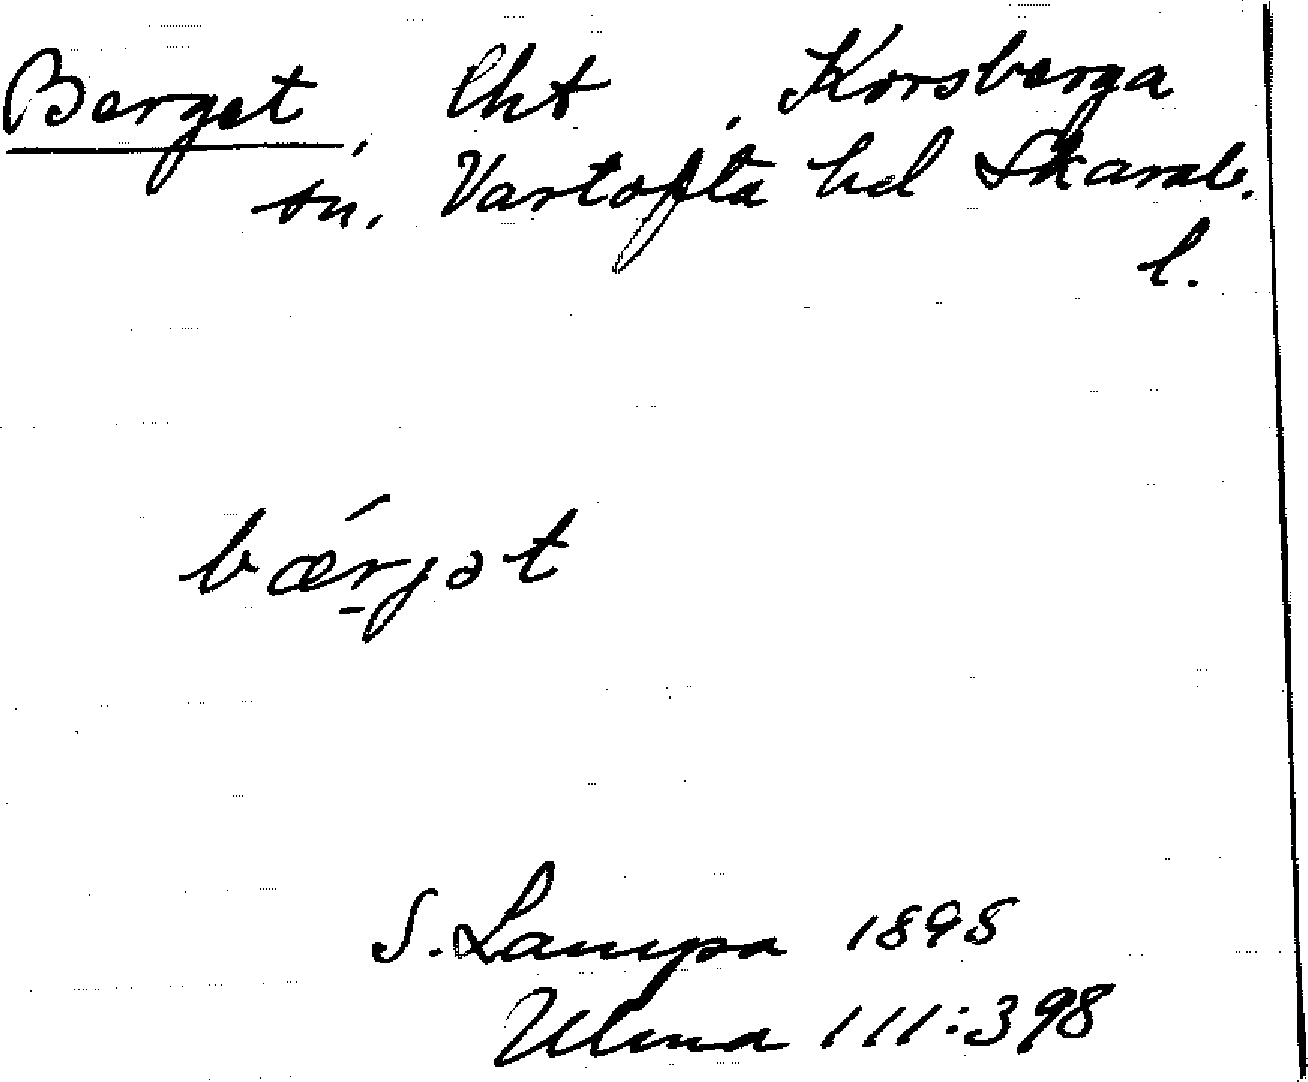 Berget, lht, Korsberga
sn. Vartofta hd Skarab.
l.
bærjət
S. Lampa 1898
Ulma 111:398